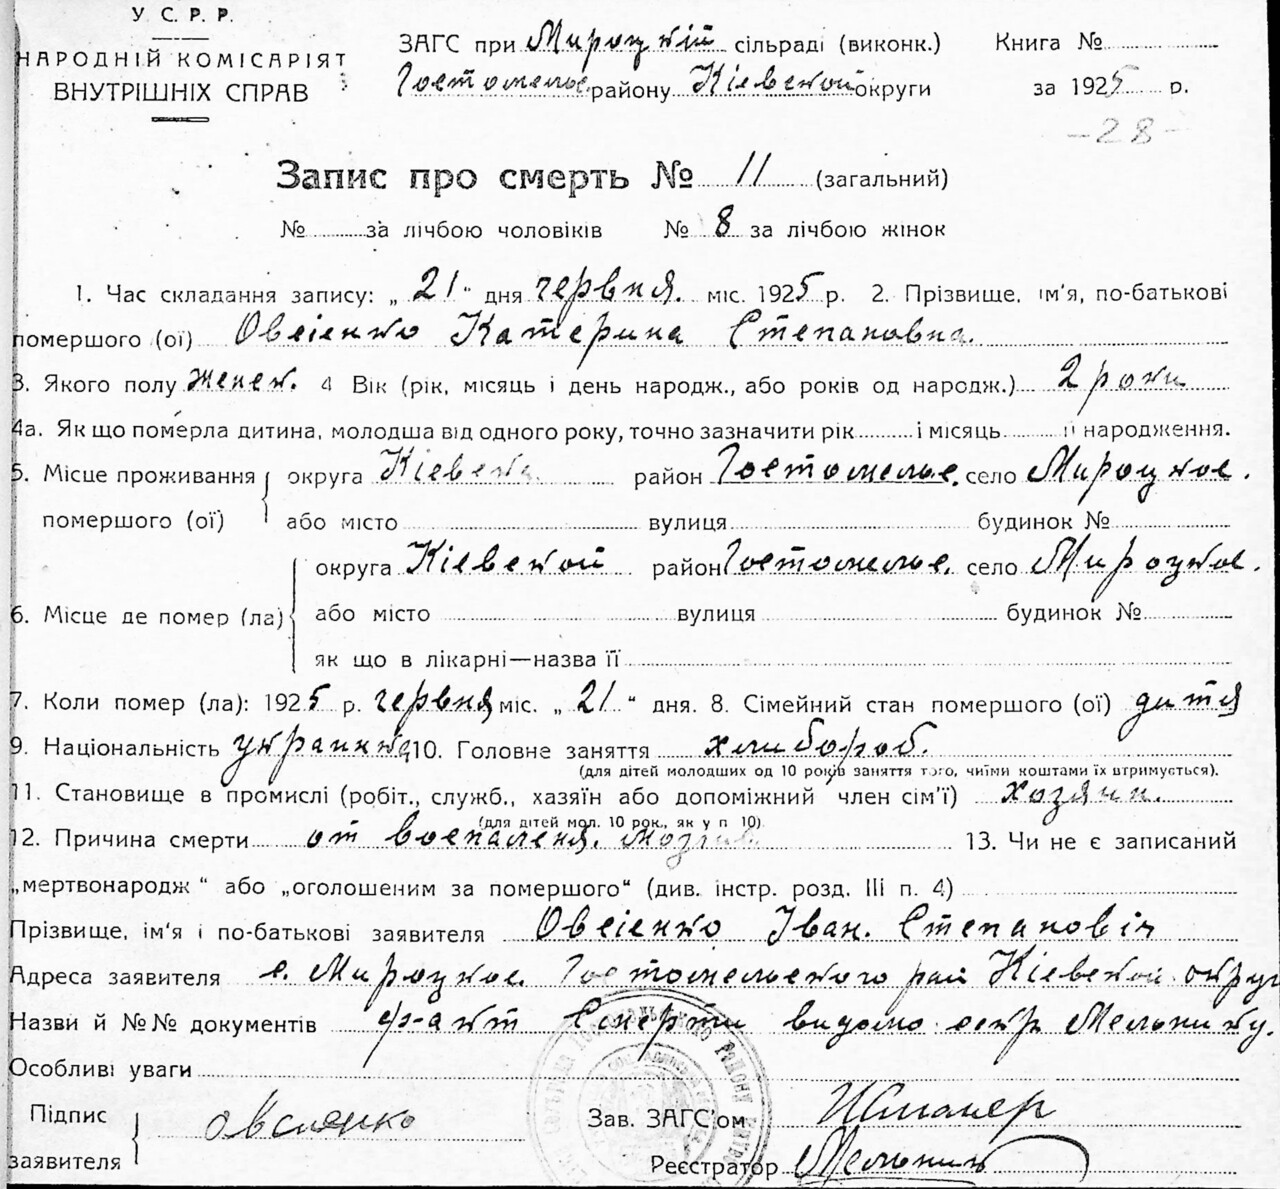 У. С. Р. Р.
НАРОДНІЙ КОМІСАРІЯТ
ВНУТРІШНІХ СПРАВ
ЗАГС при Мироцкій сільраді (виконк.)
Гостомельс. району Кіевской округи
Книга №
за 1925 р.
-28-
Запис про смерть № 11 (загальний)
№ за лічбою чоловіків № 8 за лічбою жінок
1. Час складання запису: „ 21 " дня червня. міс. 1925 р. 2. Прізвище, ім'я, по-батькові
помершого (ої) Овсіенко Катерина Степановна.
3. Якого полу женск. 4 Вік (рік, місяць і день народж., або років од народж.) 2 роки
4а. Як що померла дитина, молодша від одного року, точно зазначити рік і місяць її народження.
5. Місце проживання округа Кіевска район Гостомельс. село Мироцкое.
помершого (ої) або місто вулиця будинок №
округа Кіевской район Гостомельс. село Мироцкое.
6. Місце де помер (ла) або місто вулиця будинок №
як що в лікарні—назва її
7. Коли помер (ла): 1925 р. червня міс. „ 21 " дня. 8. Сімейний стан помершого (ої) дитя
9. Національність украинка 10. Головне заняття хлибороб.
(для дітей молодших од 10 років заняття того, чиїми коштами їх втримується).
11. Становище в промислі (робіт., служб., хазяїн або допоміжний член сім'ї) хозяин.
(для дітей мол. 10 рок., як у п 10)
12. Причина смерти от воспаленя. 13. Чи не є записаний
„мертвонародж " або „оголошеним за помершого" (див. інстр. розд. III п. 4)
Прізвище, ім'я і по-батькові заявителя Овсіенко Іван. Степановіч
Адреса заявителя с. Мироцкое. Гостомельского рай Кіевской округ
Назви й №№ документів факт Смерти видомо Мельнику.
Особливі уваги
Підпис заявителя Овсіенко
Зав. ЗАГС'ом
Реєстратор Мельник